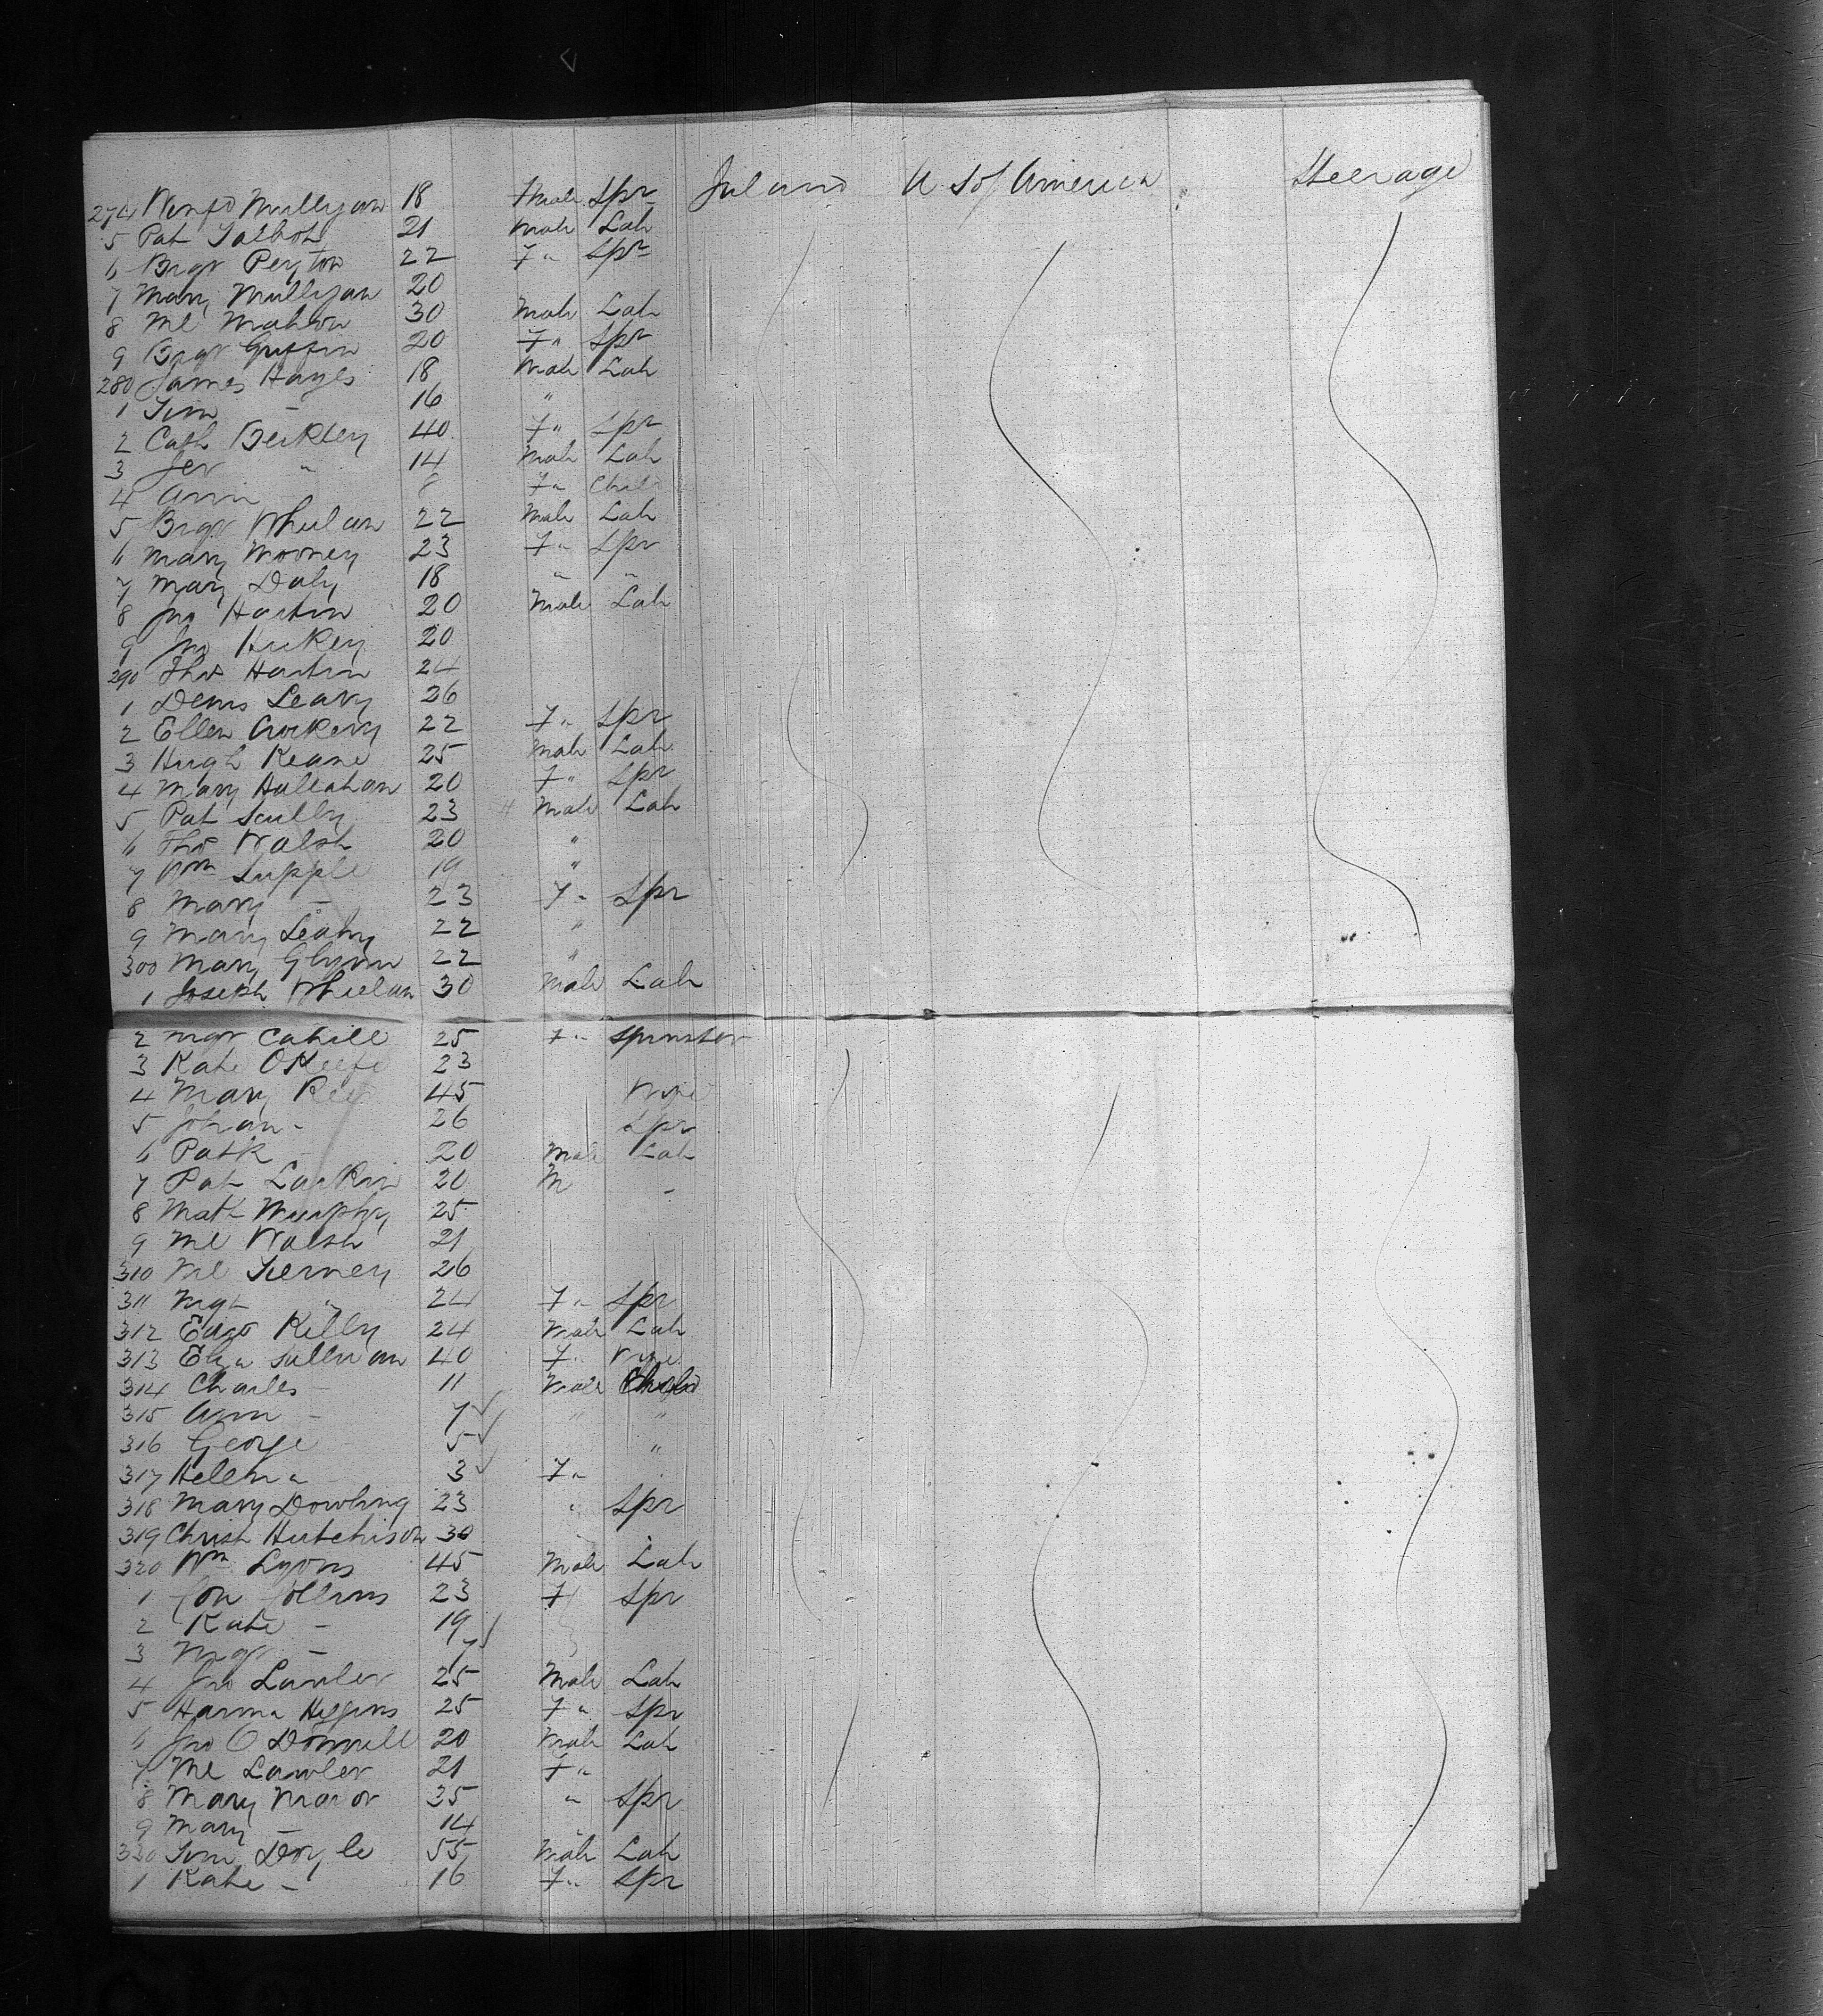 274 Winfd Mulligan 18 Fmale Spr Ireland U. S of America Steerage
5 Pat Talbot 21 Male Lab
6 Brgt Peyton 22 F " Spr
7 Mary Mulligan 20
8 Ml Mahon 30 Male Lab
9 Brgt Griffin 20 F " Spr
280 James Hayes 18 Male Lab
1 Tim - 16 "
2 Cath Buckley 40 F " Spr
3 Jer " 14 Male Lab
4 Ann 8 F " Child
5 Brgt Whelan 22 Male Lab
6 Mary Mooney 23 F " Spr
7 Mary Daly 18 " "
8 Jno Hartin 20 Male Lab
9 Jno Hickey 20
290 Thos Hartin 24
1 Denis Leary 26
2 Ellen Crockery 22 F " Spr
3 Hugh Keane 25 Male Lab
4 Mary Hallahan 20 F " Spr
5 Pat Scully 23 Male Lab
6 Thos Walsh 20 "
7 Wm Supple 19 "
8 Mary - 23 F " Spr
9 Mary Leahy 22 "
300 Mary Glynn 22 "
1 Joseph Whelan 30 Male Lab
2 Mgt Cahill 25 F " Spinster
3 Kate OKeefe 23
4 Mary 45 Wife
5 Johan - 26 Spr
6 Patk - 20 Male Lab
7 Pat Larkin 20 M -
8 Matt Murphy 25
9 Ml Walsh 21
310 Ml Tierney 26
311 Mgt " 24 F " Spr
312 Edwd Kelly 24 Male Lab
313 Eliza Sullivan 40 F " Wife
314 Charles - 11 Male Child
315 Ann - 7 " "
316 George - 5 "
317 Helena - 3 F "
318 Mary Dowling 23 " Spr
319 Christ Hutchison 30
320 Wm Lyons 45 Male Lab
1 Con Collins 23 F Spr
2 Kate - 19
3 Mgt - 7
4 Jno Lawler 25 Male Lab
5 Hanna Higgins 25 F " Spr
6 Jno O Donnell 20 Male Lab
7 Ml Lawler 21 F "
8 Mary 35 " Spr
9 Mary - 14
330 Tim Doyle 55 Male Lab
1 Kate - 16 F " Spr